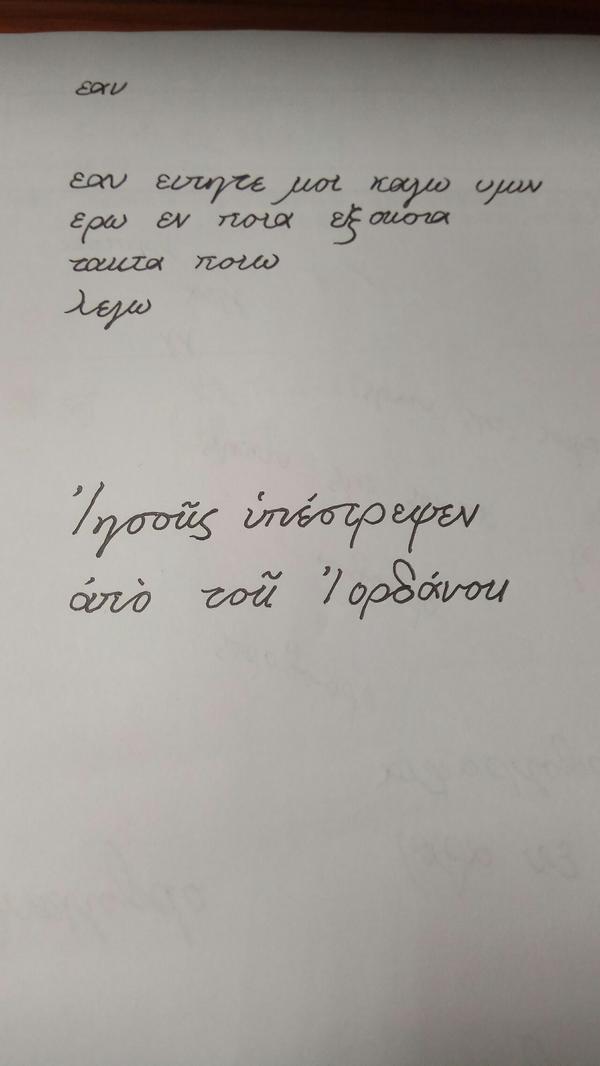 εαν
εαν ειπητε μοι καγω υμιν
ερω εν ποια εξουσια
ταυτα ποιω
λεγω
Ἰησοῦς ὑπέστρεψεν
ἀπὸ τοῦ Ἰορδάνου